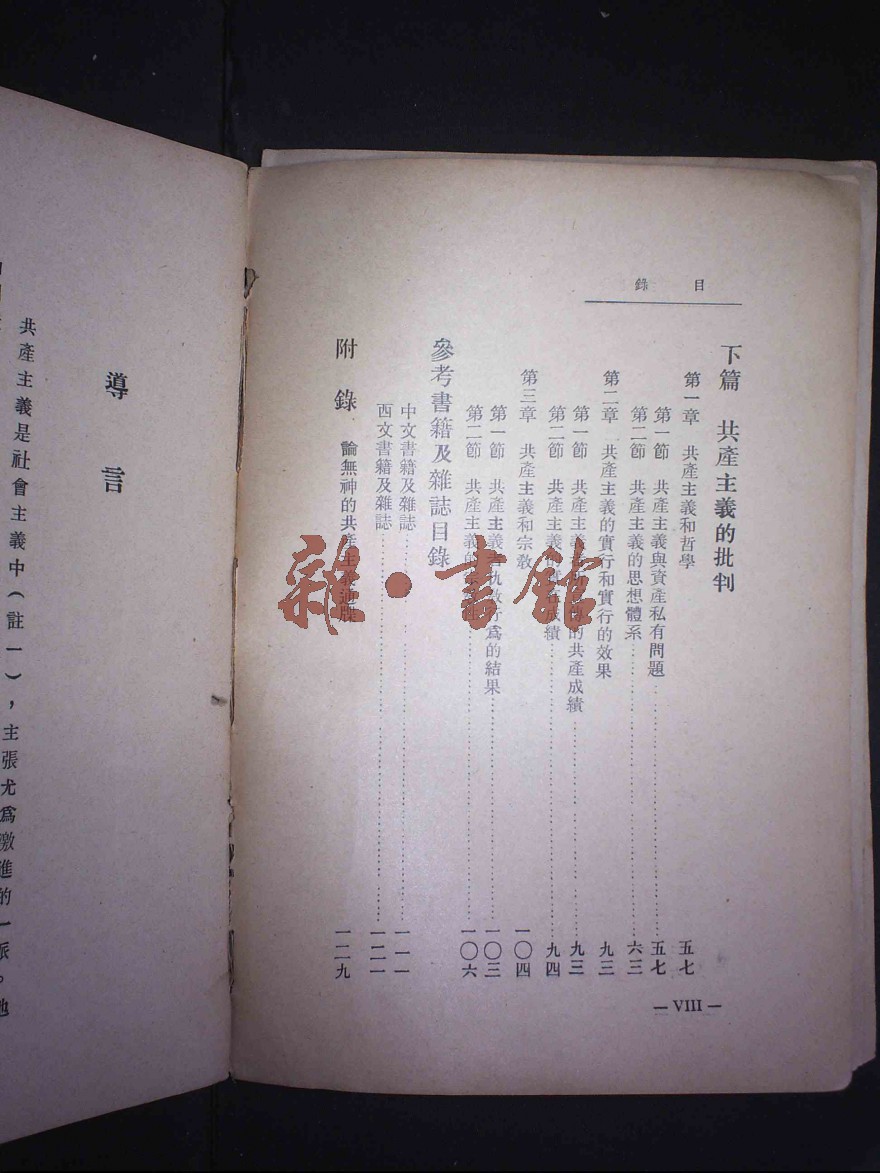 目錄
下篇 共產主義的批判
第一章 共產主義和哲學 五七
第一節 共產主義與資產私有問題 五七
第二節 共產主義的思想體系 六三
第二章 共產主義的實行和實行的效果 九三
第一節 共產主義 的共產成績 九三
第二節 共產主義的 成績 九四
第三章 共產主義和宗教 一〇四
第一節 共產主義 仇教行為的結果 一〇三
第二節 共產主義的 一〇六
參考書籍及雜誌目錄
中文書籍及雜誌 一一一
西文書籍及雜誌 一二一
附錄 論無神的共產主義 一二九
— VIII —
導言
共產主義是社會主義中(註一),主張尤為激進的一派。
雜·書館